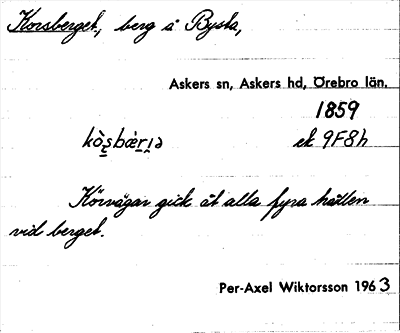 Korsberget, berg å Bysta,
Askers sn, Askers hd, Örebro län.
1859
ek 9F8h
Körvägar gick åt alla fyra hållen
vid berget.
Per-Axel Wiktorsson 1963